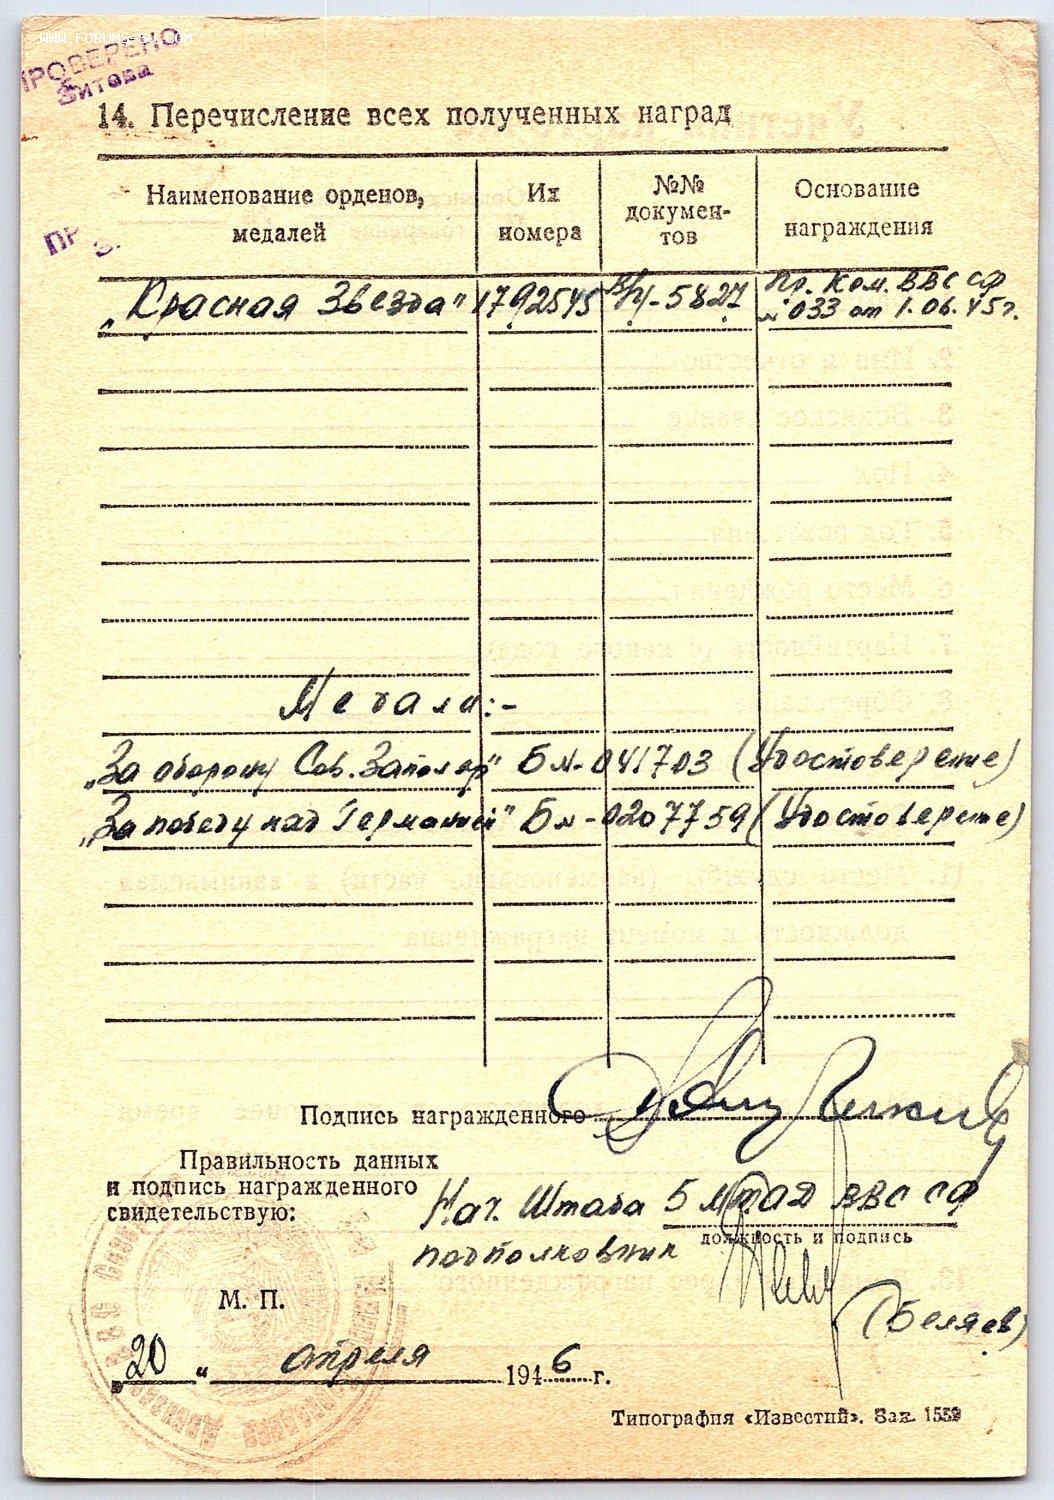 WWW.FORUMS-SU.COM
ПРОВЕРЕНО
Зитова
14. Перечисление всех полученных наград
Наименование орденов, медалей
Их номера
№№ документов
Основание награждения
ПР
З.
„Красная Звезда" 1792545 5827 Пр. Ком. ВВС СФ
№ 033 от 1.06.45г.
Медали:-
„За оборону Сов. Заполяр" Бм-041703 (Удостоверение)
„За победу над Германией" Бм-0207759 (Удостоверение)
Подпись награжденного
Правильность данных
и подпись награжденного
свидетельствую:
Нач. Штаба 5 МТАД ВВС СФ
должность и подпись
подполковник
М. П.
(Беляев)
„20" апреля 1946 г.
Типография «Известий». Зак. 1559